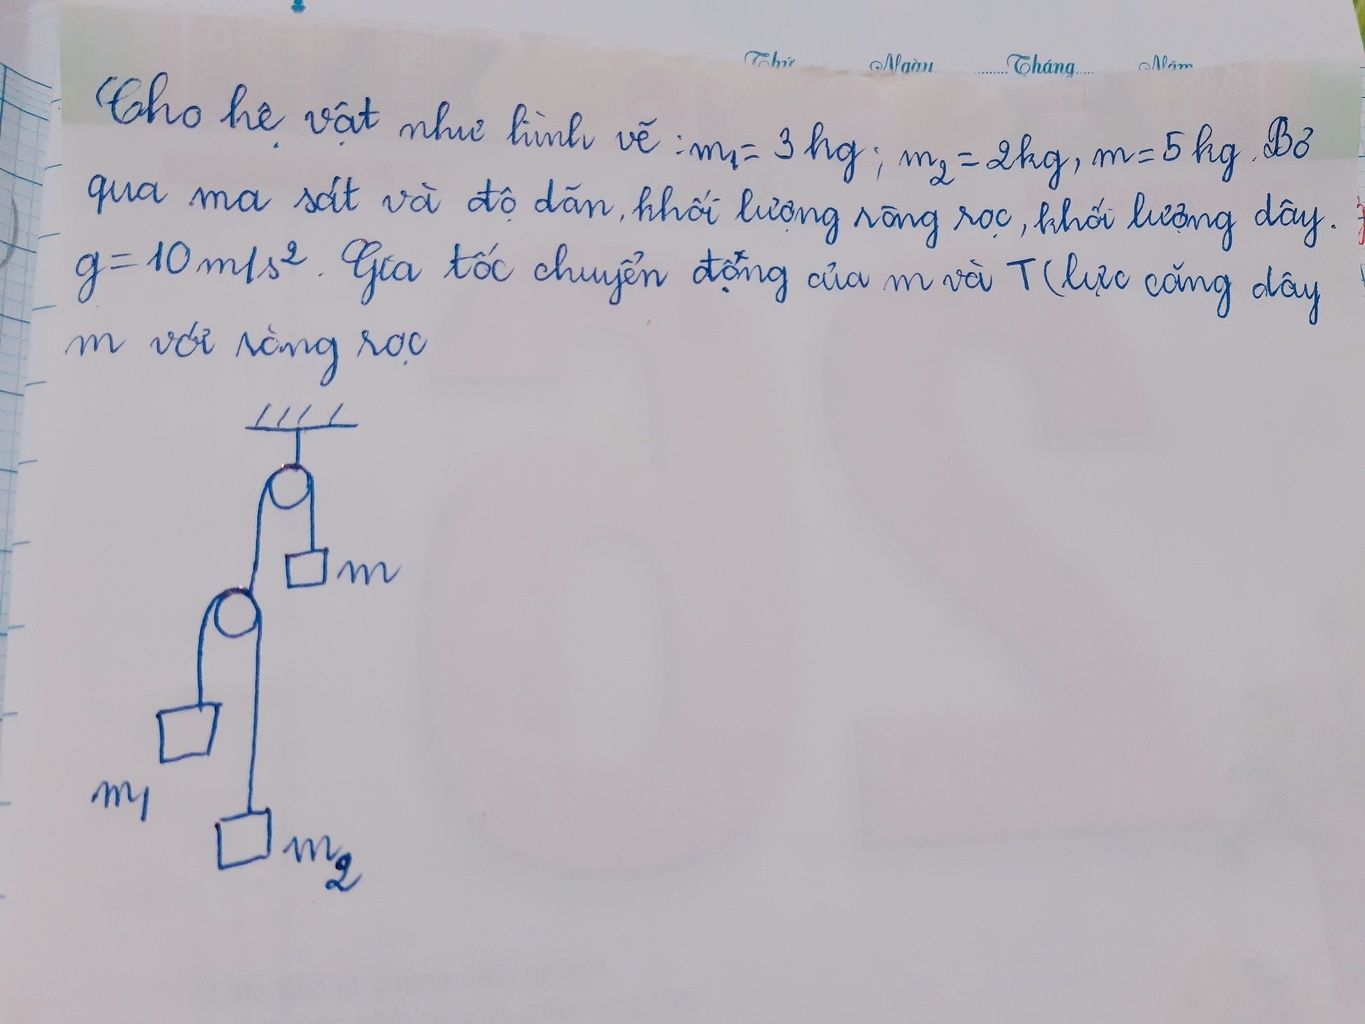 Thứ Ngày Tháng Năm
Cho hệ vật như hình vẽ : m₁ = 3 kg ; m₂ = 2kg, m = 5 kg. Bỏ
qua ma sát và độ dãn, khối lượng ròng rọc, khối lượng dây.
g = 10 m/s². Gia tốc chuyển động của m và T (lực căng dây
m với ròng rọc
m
m₁
m₂